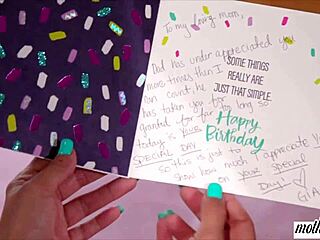 To my loving mom,
Dad has under appreciated you
more times than I
can count. he
has taken you for
granted for far too long so
today is your
SPECIAL DAY
so this is just to appreciate you
show how much on your special
DAY! ♡
GIA
SOME THINGS
REALLY ARE
JUST THAT SIMPLE.
Happy
Birthday
moth